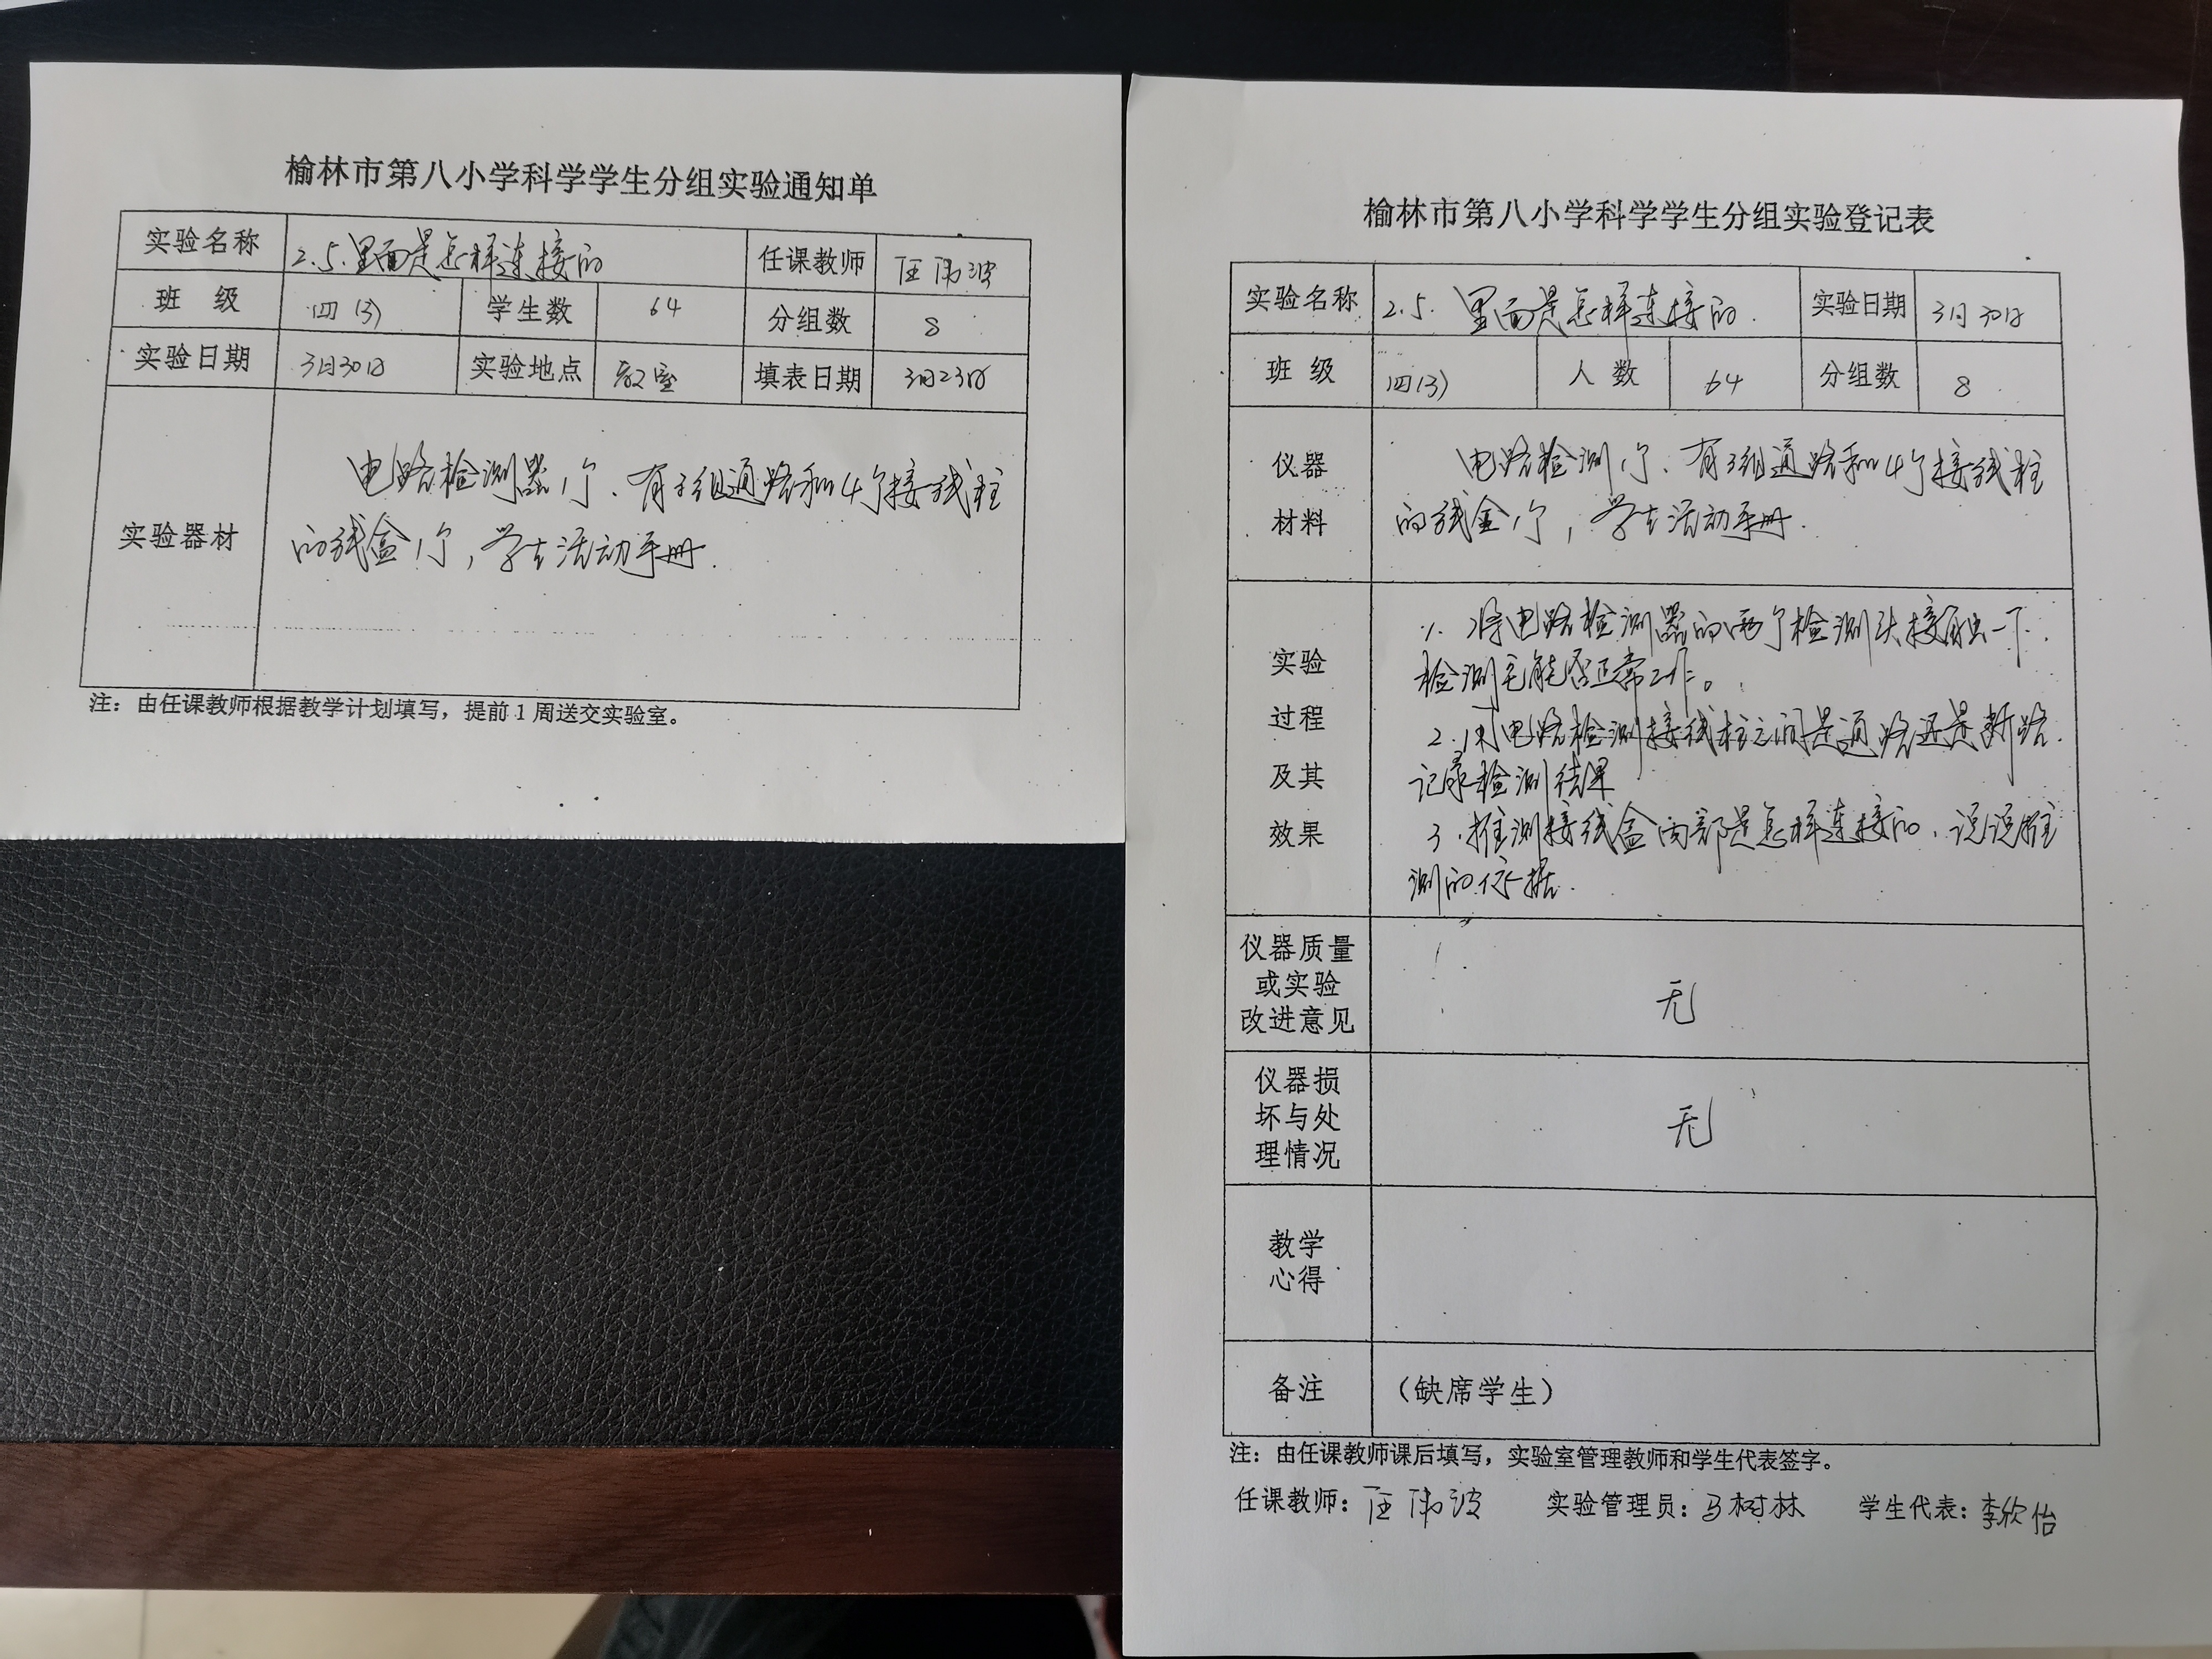 榆林市第八小学科学学生分组实验通知单
实验名称 2.5.里面是怎样连接的 任课教师 伟波
班 级 四(3) 学生数 64 分组数 8
实验日期 3月30日 实验地点 教室 填表日期 3月23日
电路检测器1个、有3组通路和4个接线柱
实验器材 的线盒1个,学生活动手册.
注：由任课教师根据教学计划填写，提前1周送交实验室。
榆林市第八小学科学学生分组实验登记表
实验名称 2.5. 里面是怎样连接的. 实验日期 3月30日
班 级 四(3) 人 数 64 分组数 8
仪器 电路检测1个、有3组通路和4个接线柱
材料 的线盒1个,学生活动手册.
1. 将电路检测器的两个检测头接触一下.
实验 检测它能否正常工作。
过程 2.用电路检测接线柱之间是通路还是断路.
及其 记录检测结果
效果 3.推测接线盒内部是怎样连接的、说说推
测的依据.
仪器质量
或实验 无
改进意见
仪器损
坏与处 无
理情况
教学
心得
备注 （缺席学生）
注：由任课教师课后填写，实验室管理教师和学生代表签字。
任课教师： 伟波 实验管理员：马树林 学生代表：李欣怡